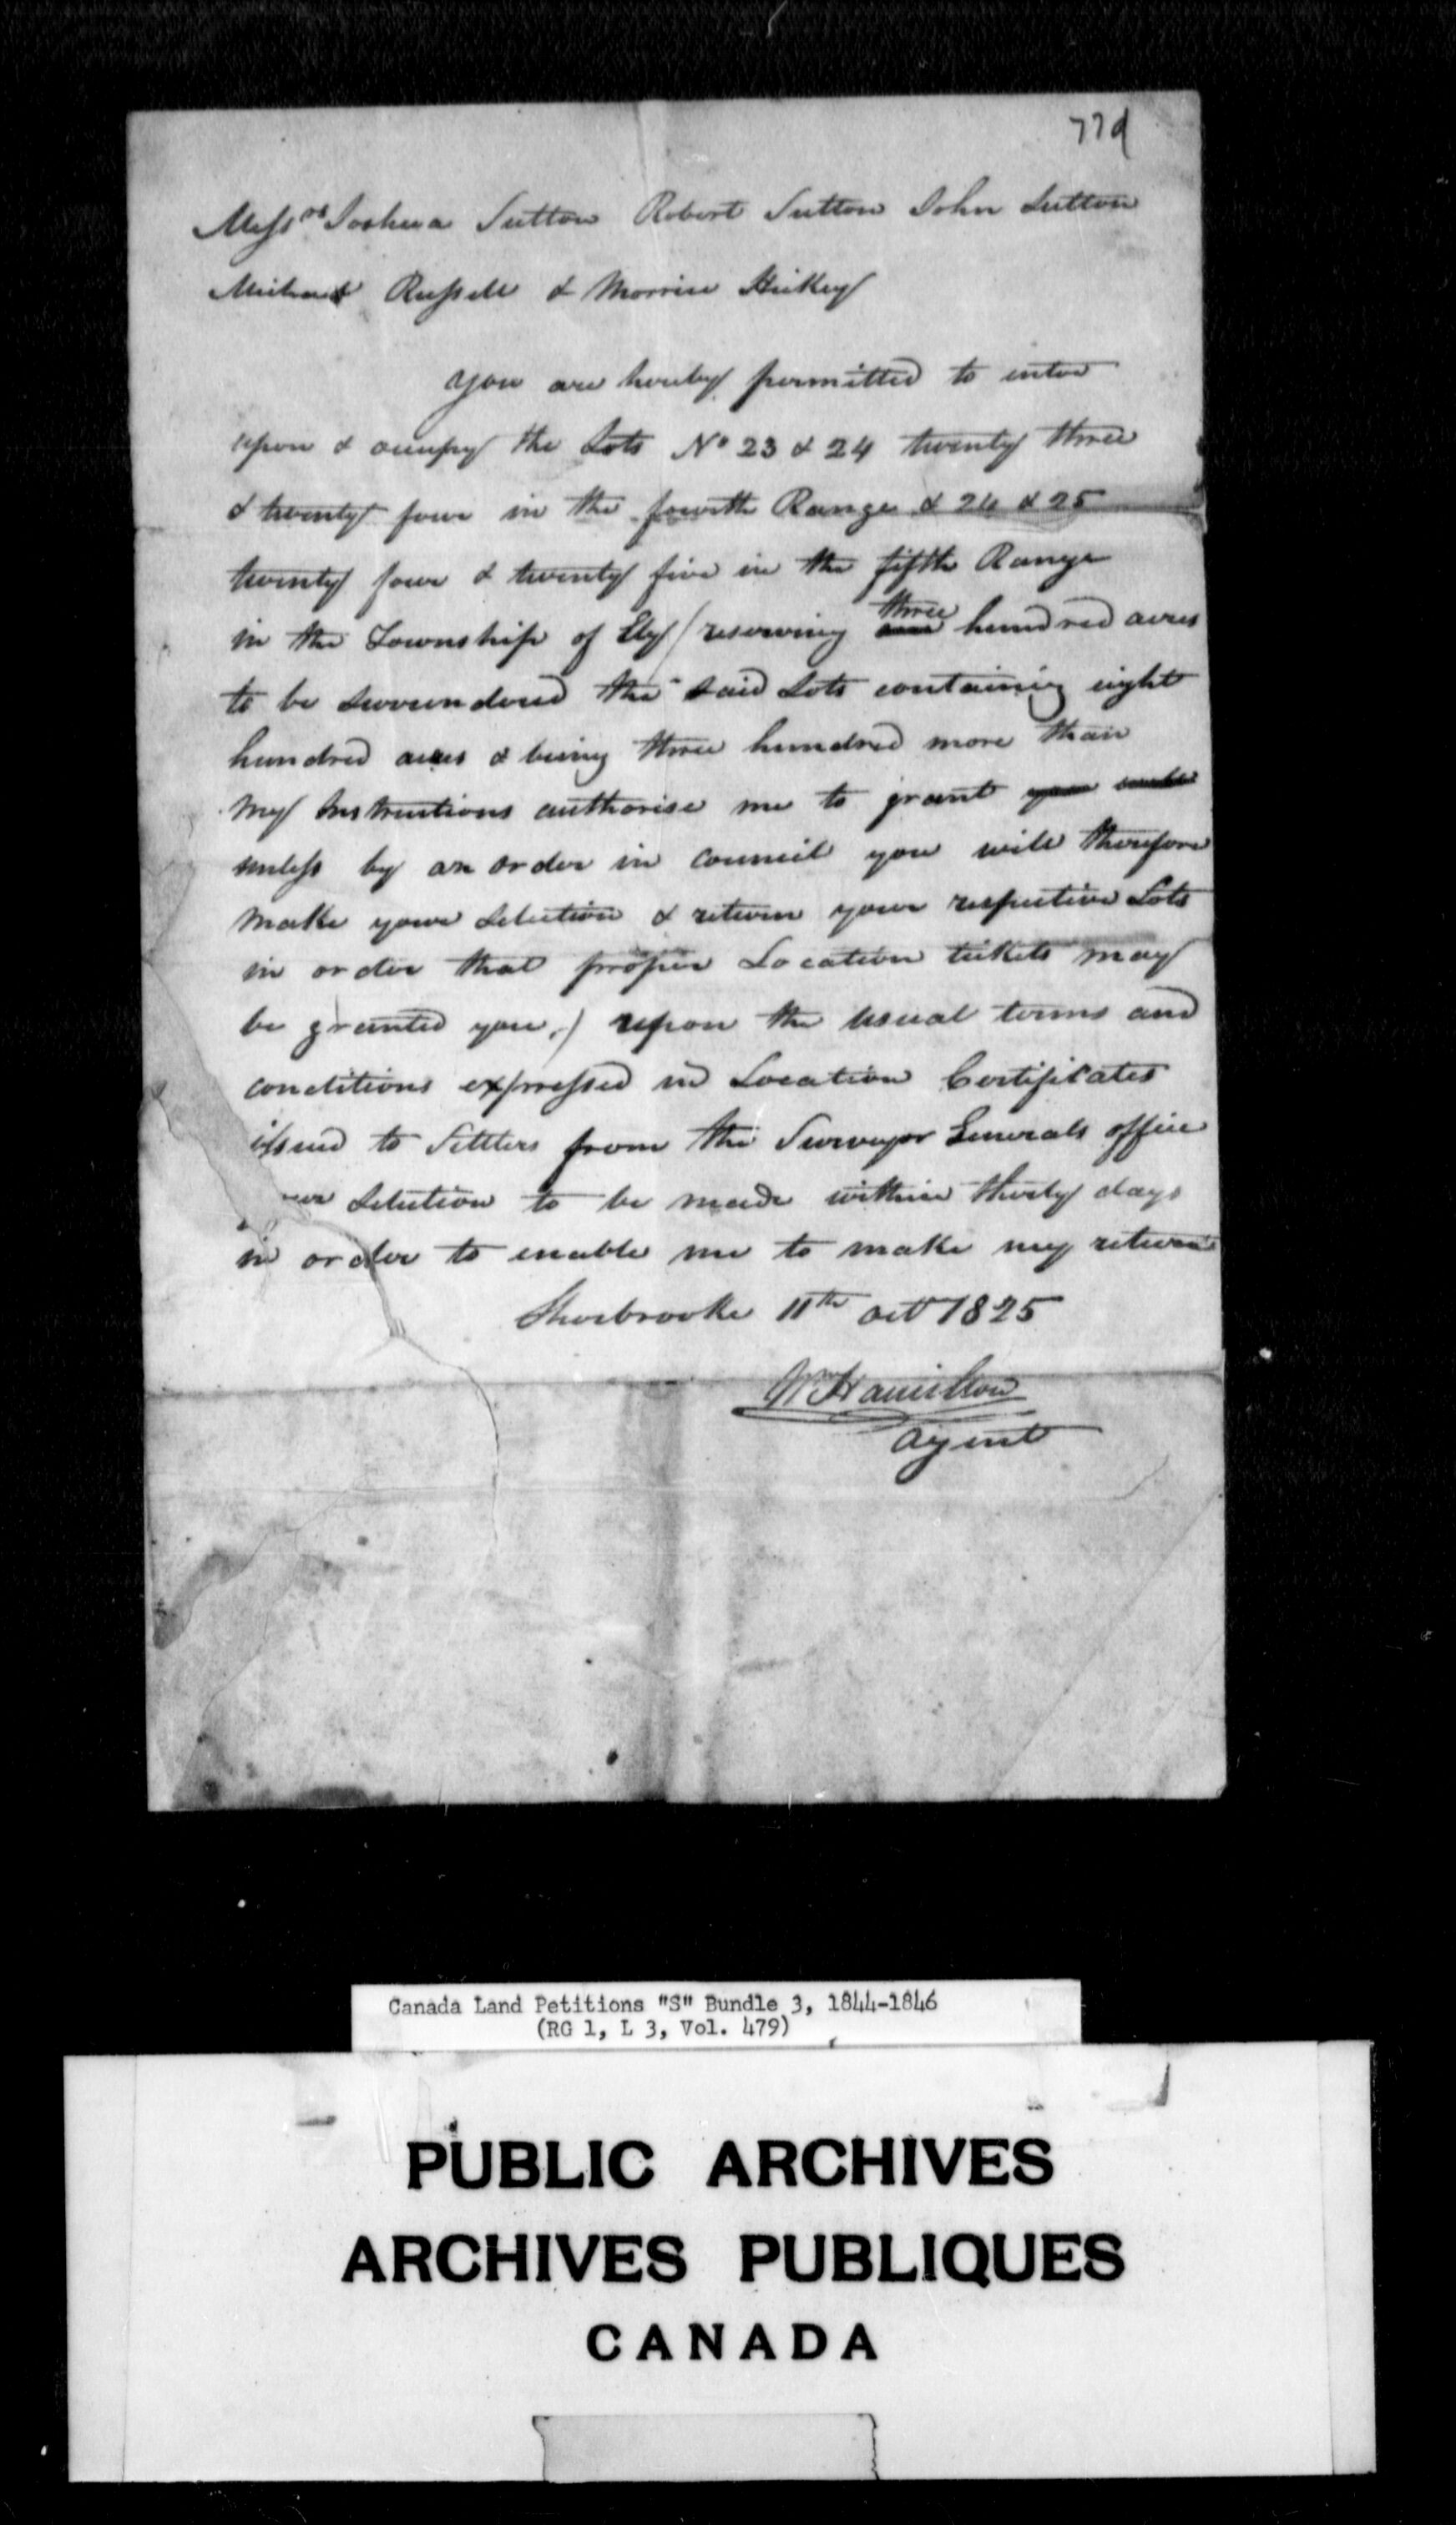 77d
Messrs Joshua Sutton Robert Sutton John Sutton
Michael Russell & Morrice Hickey
you are hereby permitted to enter
upon & occupy the Lots No 23 & 24 twenty three
& twenty four in the fourth Range & 24 & 25
twenty four & twenty five in the fifth Range
in the Township of Ely (reserving three hundred acres
to be surrendered the said Lots containing eight
hundred acres & being three hundred more than
my Instructions authorise me to grant
unless by an order in Council you will therefore
make your Selection & return your respective Lots
in order that proper Location tickets may
be granted you,) upon the usual terms and
conditions expressed in Location Certificates
issued to Settlers from the Surveyor Generals office
Selection to be made within thirty days
in order to enable me to make my return
Sherbrooke 11th oct 1825
Wm Hamilton
agent
Canada Land Petitions "S" Bundle 3, 1844-1846
(RG 1, L 3, Vol. 479)
PUBLIC ARCHIVES
ARCHIVES PUBLIQUES
CANADA